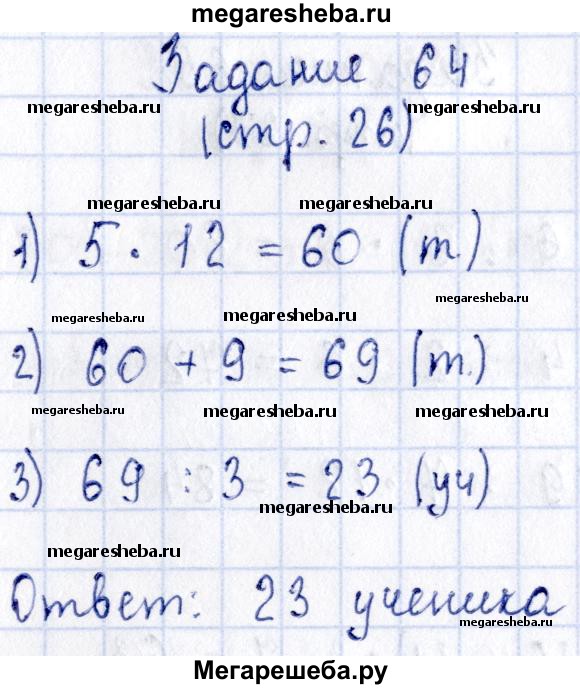 megaresheba.ru
Задание 64
megaresheba.ru megaresheba.ru
(стр. 26)
megaresheba.ru megaresheba.ru
1) 5 · 12 = 60 (т.)
megaresheba.ru
megaresheba.ru megaresheba.ru
2) 60 + 9 = 69 (т.)
megaresheba.ru megaresheba.ru megaresheba.ru
3) 69 : 3 = 23 (уч)
megaresheba.ru
megaresheba.ru
Ответ: 23 ученика
megaresheba.ru
Мегарешеба.ру